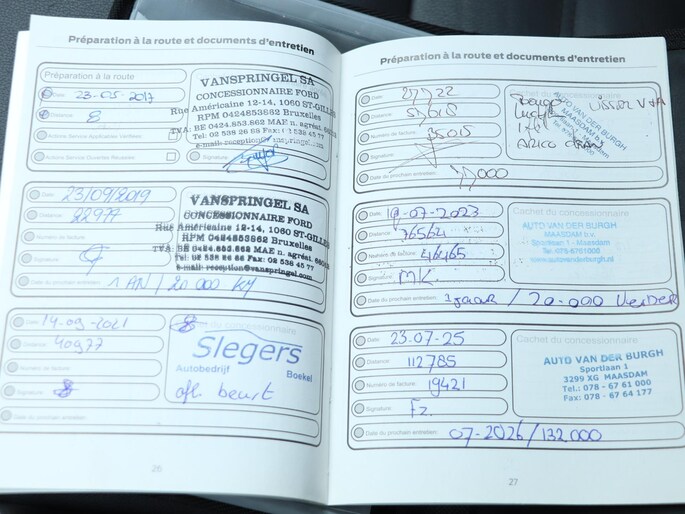 Préparation à la route et documents d'entretien
Préparation à la route
Date: 23-05-2017
Distance: 8
Actions Service Applicables Vérifiées:
Actions Service Ouvertes Réussies:
Signature:
VANSPRINGEL SA
CONCESSIONNAIRE FORD
Rue Américaine 12-14, 1060 ST-GILLES
RPM 0424853862 Bruxelles
TVA: BE 0424.853.862 MAE n. agréat.
Tel: 02 538 26 68 Fax:
e-mail: reception@vanspringel.
Date: 23/09/2019
Distance: 22977
Numéro de facture:
Signature:
Date du prochain entretien: 1 AN / 20 000 KM
VANSPRINGEL SA
CONCESSIONNAIRE FORD
Rue Américaine 12-14, 1060 ST-GILLES
RPM 0424853862 Bruxelles
TVA: BE 0424.853.862 MAE n. agréat.
Tel: 02 538 26 68 Fax: 02 538 45 77
e-mail: reception@vanspringel.com
Date: 14-09-2021
Distance: 40977
Numéro de facture:
Signature:
Date du prochain entretien:
du concessionnaire
Slegers
Autobedrijf Boekel
afl. beurt
26
Préparation à la route et documents d'entretien
Date:
Distance:
Numéro de facture: 35015
Signature:
Date du prochain entretien:
Cachet du concessionnaire
AUTO VAN DER BURGH
MAASDAM b.v.
Date: -07-2023
Distance: 76564
Numéro de facture: 46465
Signature: MK.
Date du prochain entretien: 1 jaar / 20.000 Verder
Cachet du concessionnaire
AUTO VAN DER BURGH
MAASDAM b.v.
Sportlaan 1 - Maasdam
Tel. 078-6761000
www.autovanderburgh.nl
Date: 23-07-25
Distance: 112785
Numéro de facture: 19421
Signature: Fz.
Date du prochain entretien: 07-2026 / 132.000
Cachet du concessionnaire
AUTO VAN DER BURGH
Sportlaan 1
3299 XG MAASDAM
Tel.: 078 - 67 61 000
Fax: 078 - 67 64 177
27